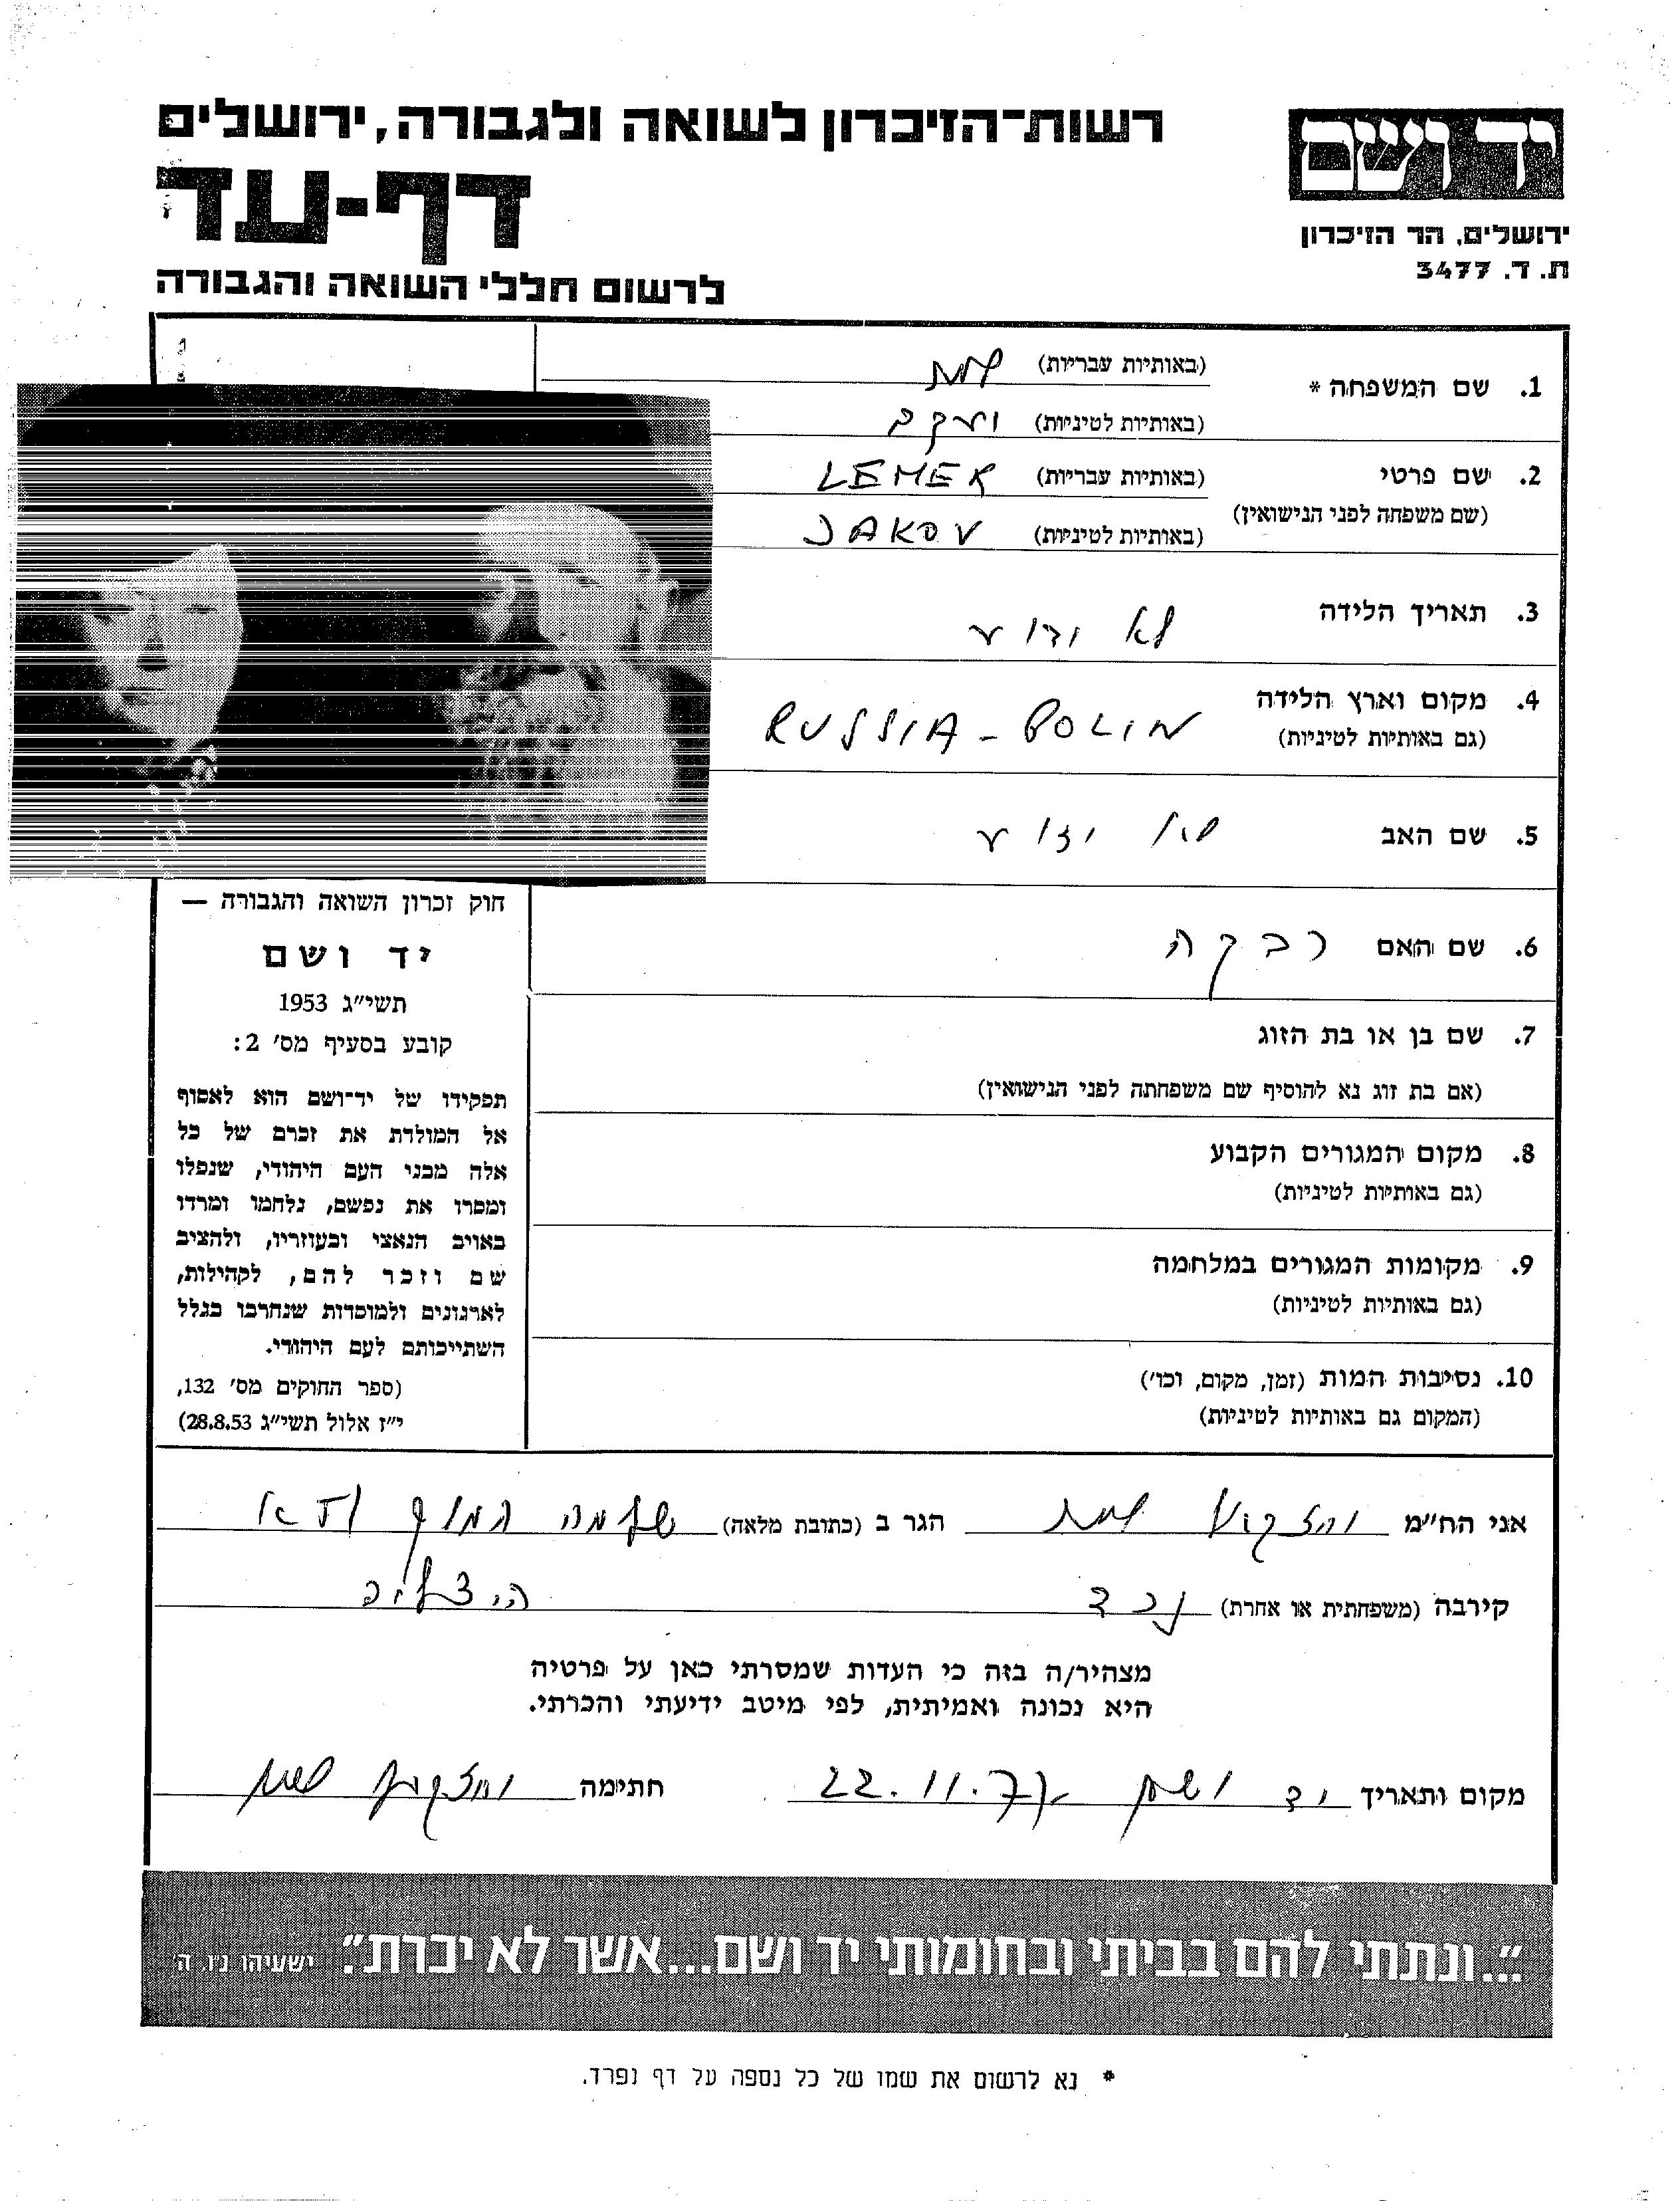 רשות-הזיכרון לשואה ולגבורה, ירושלים
דף-עד
לרשום חללי השואה והגבורה
יד ושם
ירושלים, הר הזיכרון
ת. ד. 3477
1. שם המשפחה *
(באותיות עבריות)
(באותיות לטיניות) יעקב
2. שם פרטי
(שם משפחה לפני הנישואין)
(באותיות עבריות) LEMER
(באותיות לטיניות) JAKOV
3. תאריך הלידה לא ידוע
4. מקום וארץ הלידה
(גם באותיות לטיניות)
RUSSIA - POLIN
5. שם האב לא ידוע
6. שם האם רבקה
7. שם בן או בת הזוג
(אם בת זוג נא להוסיף שם משפחתה לפני הנישואין)
8. מקום המגורים הקבוע
(גם באותיות לטיניות)
9. מקומות המגורים במלחמה
(גם באותיות לטיניות)
10. נסיבות המות (זמן, מקום, וכו')
(המקום גם באותיות לטיניות)
חוק זכרון השואה והגבורה —
יד ושם
תשי"ג 1953
קובע בסעיף מס' 2:
תפקידו של יד-ושם הוא לאסוף
אל המולדת את זכרם של כל
אלה מבני העם היהודי, שנפלו
ומסרו את נפשם, נלחמו ומרדו
באויב הנאצי ובעוזריו, ולהציב
שם וזכר להם, לקהילות,
לארגונים ולמוסדות שנחרבו בגלל
השתייכותם לעם היהודי.
(ספר החוקים מס' 132,
י"ז אלול תשי"ג 28.8.53)
אני הח"מ הגר ב (כתובת מלאה) שלמה המלך
קירבה (משפחתית או אחרת) נכד
מצהיר/ה בזה כי העדות שמסרתי כאן על פרטיה
היא נכונה ואמיתית, לפי מיטב ידיעתי והכרתי.
מקום ותאריך יד ושם 22.11.77 חתימה
"...ונתתי להם בביתי ובחומותי יד ושם...אשר לא יכרת". ישעיהו נ"ו, ה'
* נא לרשום את שמו של כל נספה על דף נפרד.